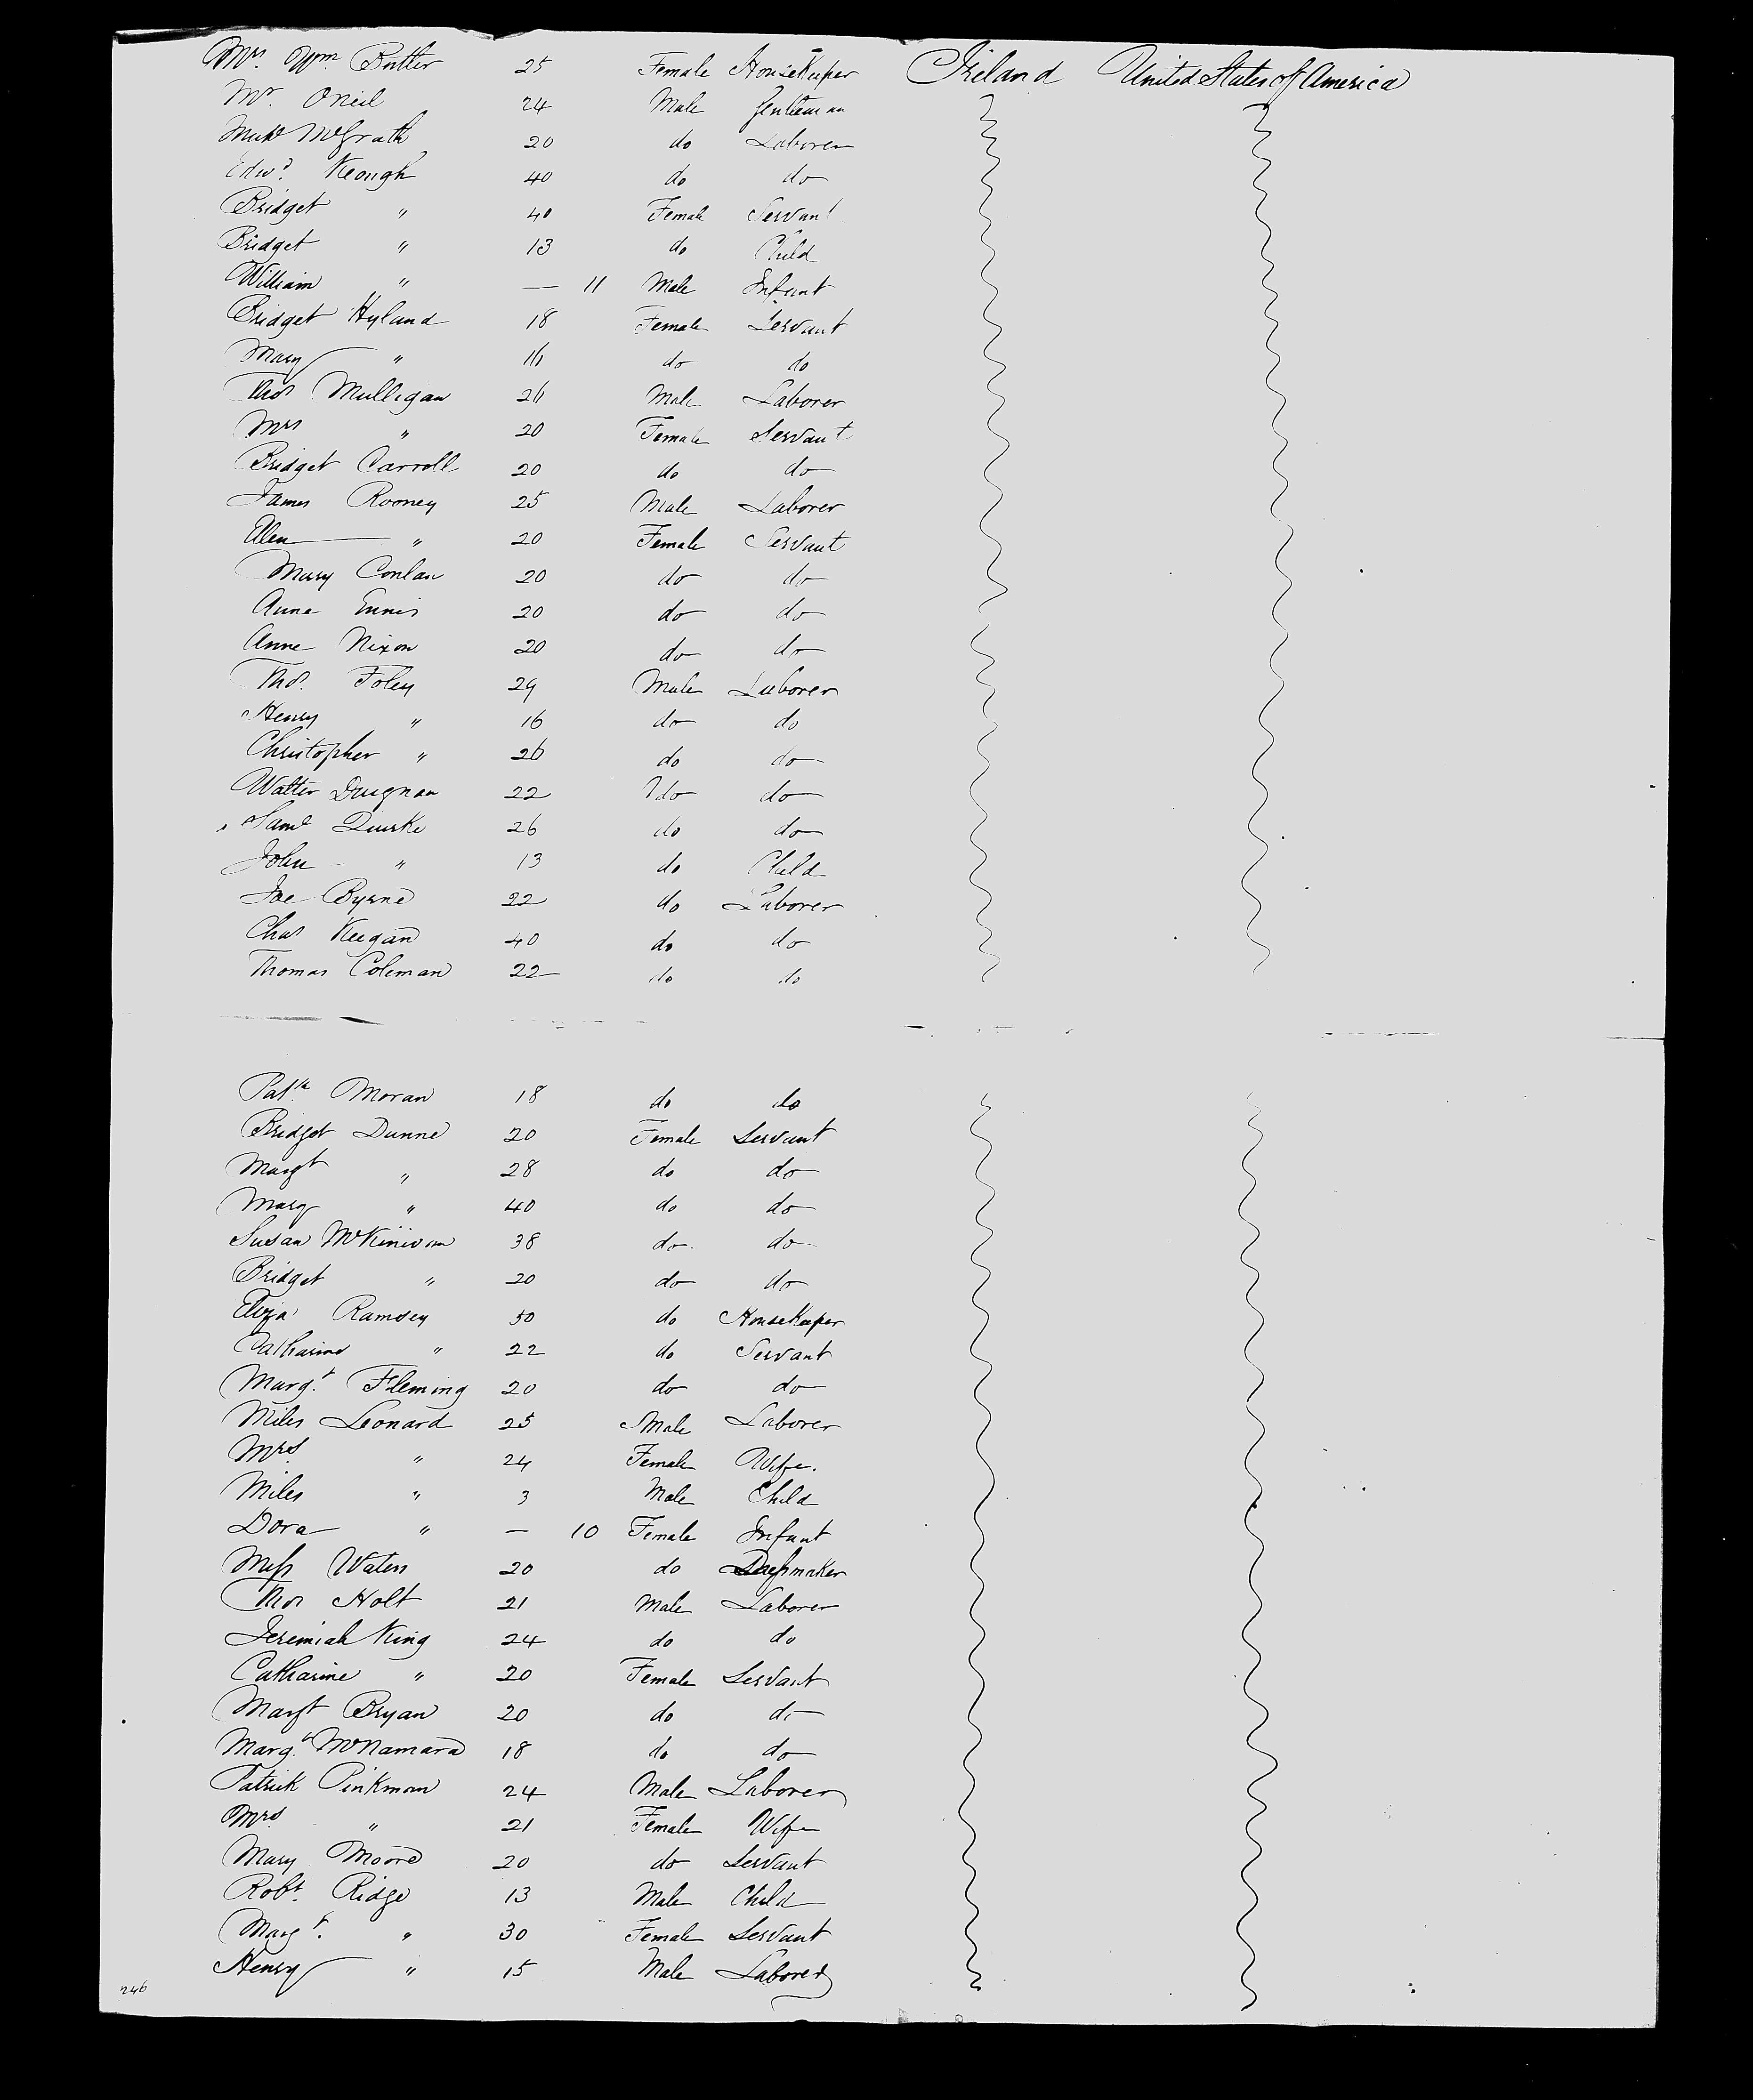 Mrs. Wm. Butler 25 Female HouseKeeper Ireland United States of America
Mr. Oneil 24 Male Gentleman
McGrath 20 do Laborer
Edwd. Keough 40 do do
Bridget " 40 Female Servant
Bridget " 13 do Child
William " — 11 Male Infant
Bridget Hyland 18 Female Servant
Mary " 16 do do
Thos Mulligan 26 Male Laborer
Mrs " 20 Female Servant
Bridget Carroll 20 do do
James Rooney 25 Male Laborer
Ellen " 20 Female Servant
Mary Conlan 20 do do
Anne Ennis 20 do do
Anne Nixon 20 do do
Thos. Foley 29 Male Laborer
Henry " 16 do do
Christopher " 26 do do
Walter Duignan 22 do do
Saml Quirke 26 do do
John " 13 do Child
Joe Byrne 22 do Laborer
Chas Keegan 40 do do
Thomas Coleman 22 do do
Patk Moran 18 do do
Bridget Dunne 20 Female Servant
Margt " 28 do do
Mary " 40 do do
Susan 38 do do
Bridget " 20 do do
Eliza Ramsey 50 do HouseKeeper
Catharine " 22 do Servant
Margt. Fleming 20 do do
Miles Leonard 25 Male Laborer
Mrs " 24 Female Wife.
Miles " 3 Male Child
Dora " — 10 Female Infant
Miss Waters 20 do Dressmaker
Thos Holt 21 Male Laborer
Jeremiah King 24 do do
Catharine " 20 Female Servant
Margt Bryan 20 do do
Margt. McNamara 18 do do
Patrick Pinkman 24 Male Laborer
Mrs " 21 Female Wife
Mary Moore 20 do Servant
Robt. Ridge 13 Male Child
Margt. " 30 Female Servant
Henry " 15 Male Laborer
246